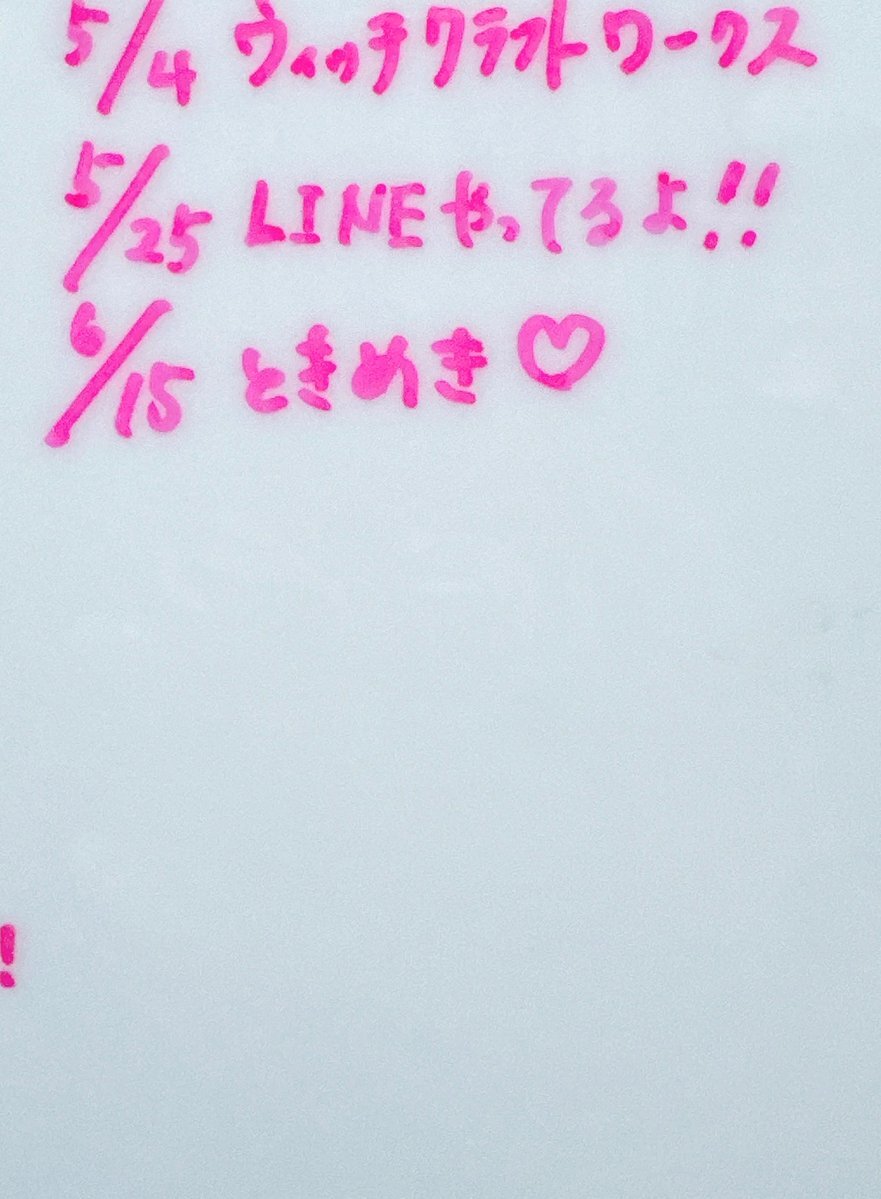 5/4 ウィッチクラフトワークス
5/25 LINEやってるよ!!
6/15 ときめき♡
!